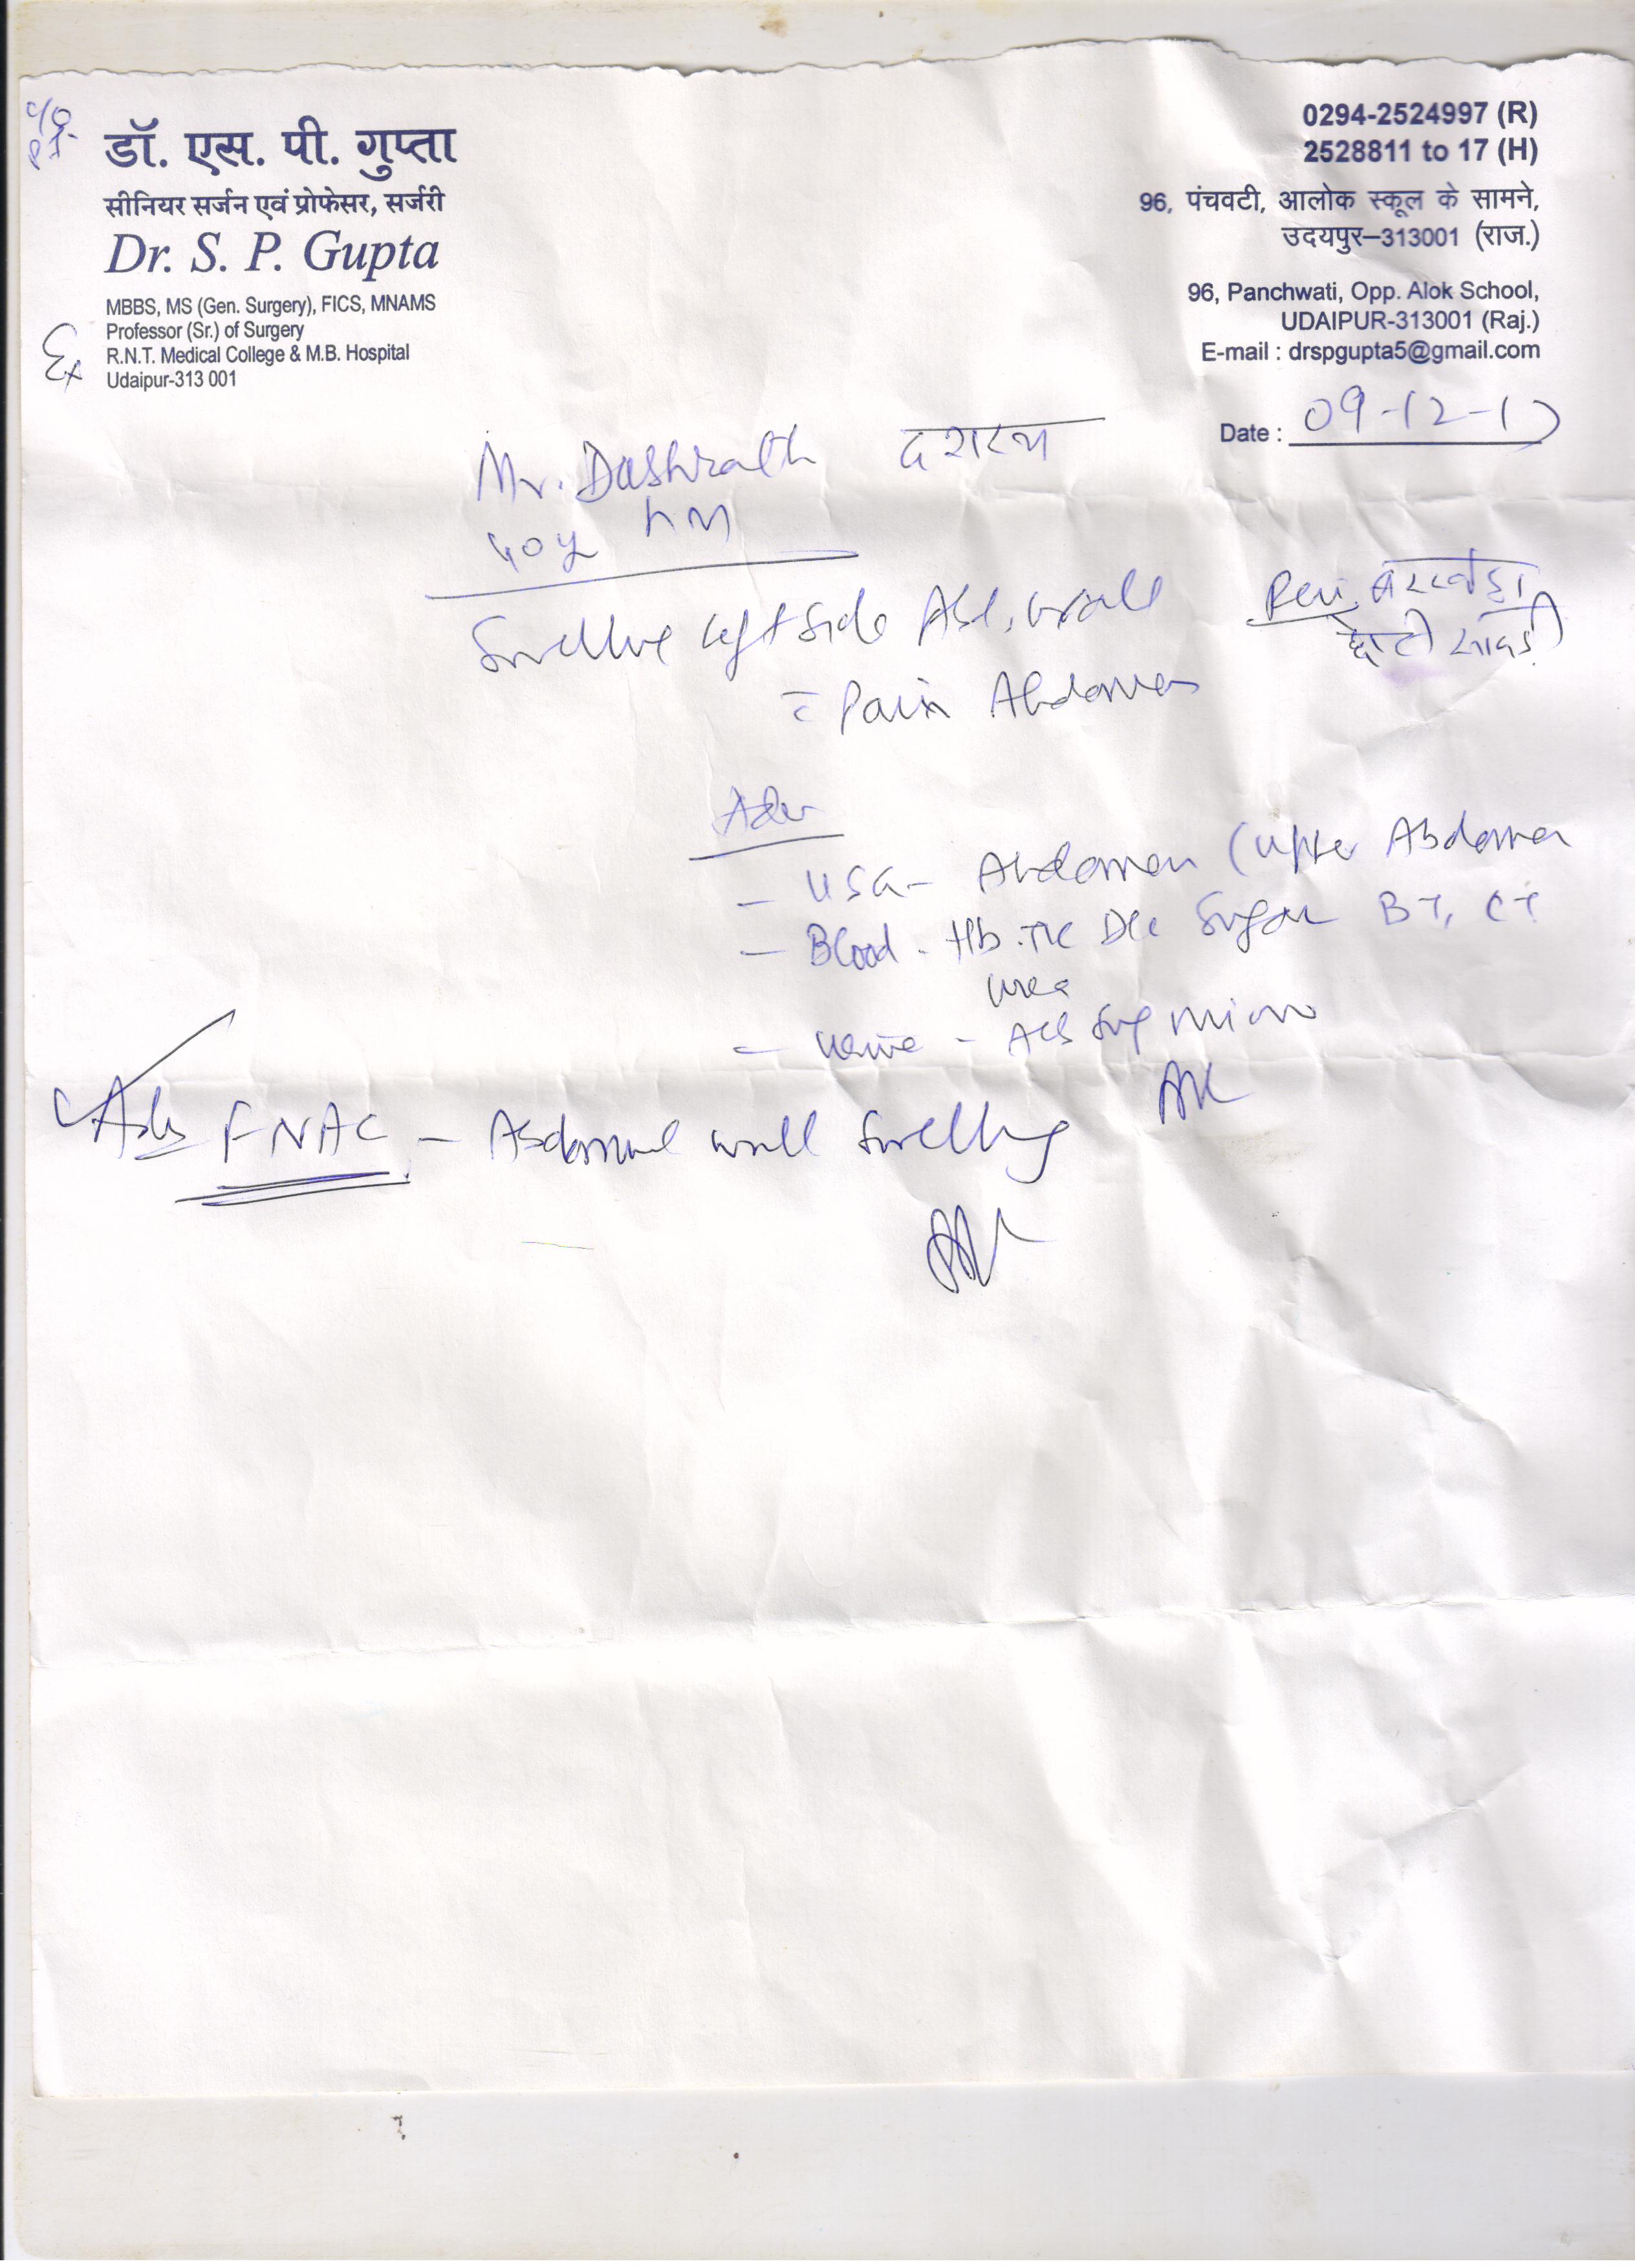 डॉ. एस. पी. गुप्ता
सीनियर सर्जन एवं प्रोफेसर, सर्जरी
Dr. S. P. Gupta
MBBS, MS (Gen. Surgery), FICS, MNAMS
Professor (Sr.) of Surgery
R.N.T. Medical College & M.B. Hospital
Udaipur-313 001
0294-2524997 (R)
2528811 to 17 (H)
96, पंचवटी, आलोक स्कूल के सामने,
उदयपुर–313001 (राज.)
96, Panchwati, Opp. Alok School,
UDAIPUR-313001 (Raj.)
E-mail : drspgupta5@gmail.com
Date : 09-12-17
Mr. Dashrath दशरथ
40y
Swelling left side Abd. wall
Pain Abdomen
Adv
- USG - Abdomen (Upper Abdomen
- Blood - Hb TLC DLC Sugar BT, CT
Urea
- Urine - Alb Sug micro
Adv FNAC - Abdominal wall Swelling